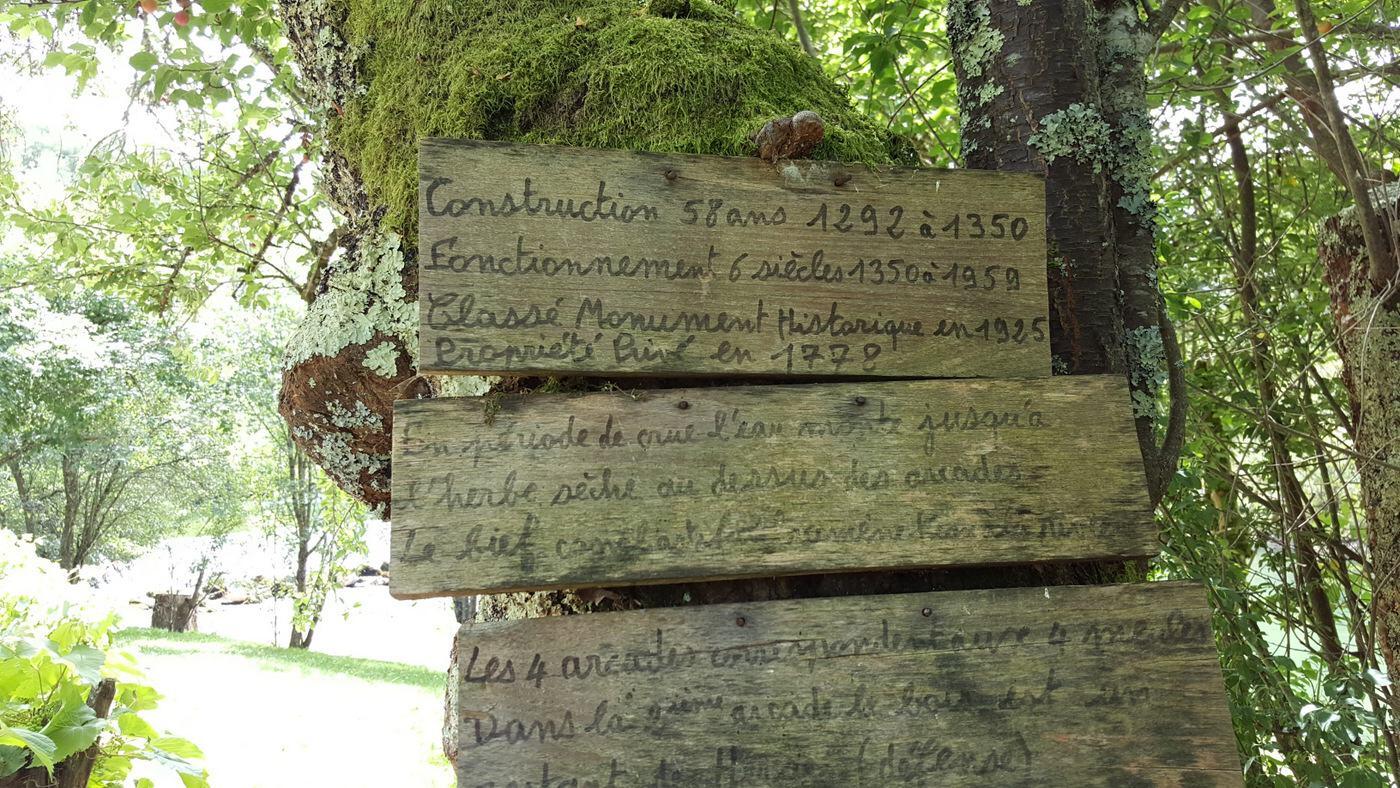 Construction 58 ans 1292 à 1350
Fonctionnement 6 siècles 1350 à 1959
Classé Monument Historique en 1925
Propriété Privé en 1778
En période de crue l'eau monte jusqu'à
l'herbe sèche au dessus des arcades
Le bief
Les 4 arcades correspondent aux 4 meules
Dans la 2ième arcade le bois est un
de Herse (défense)